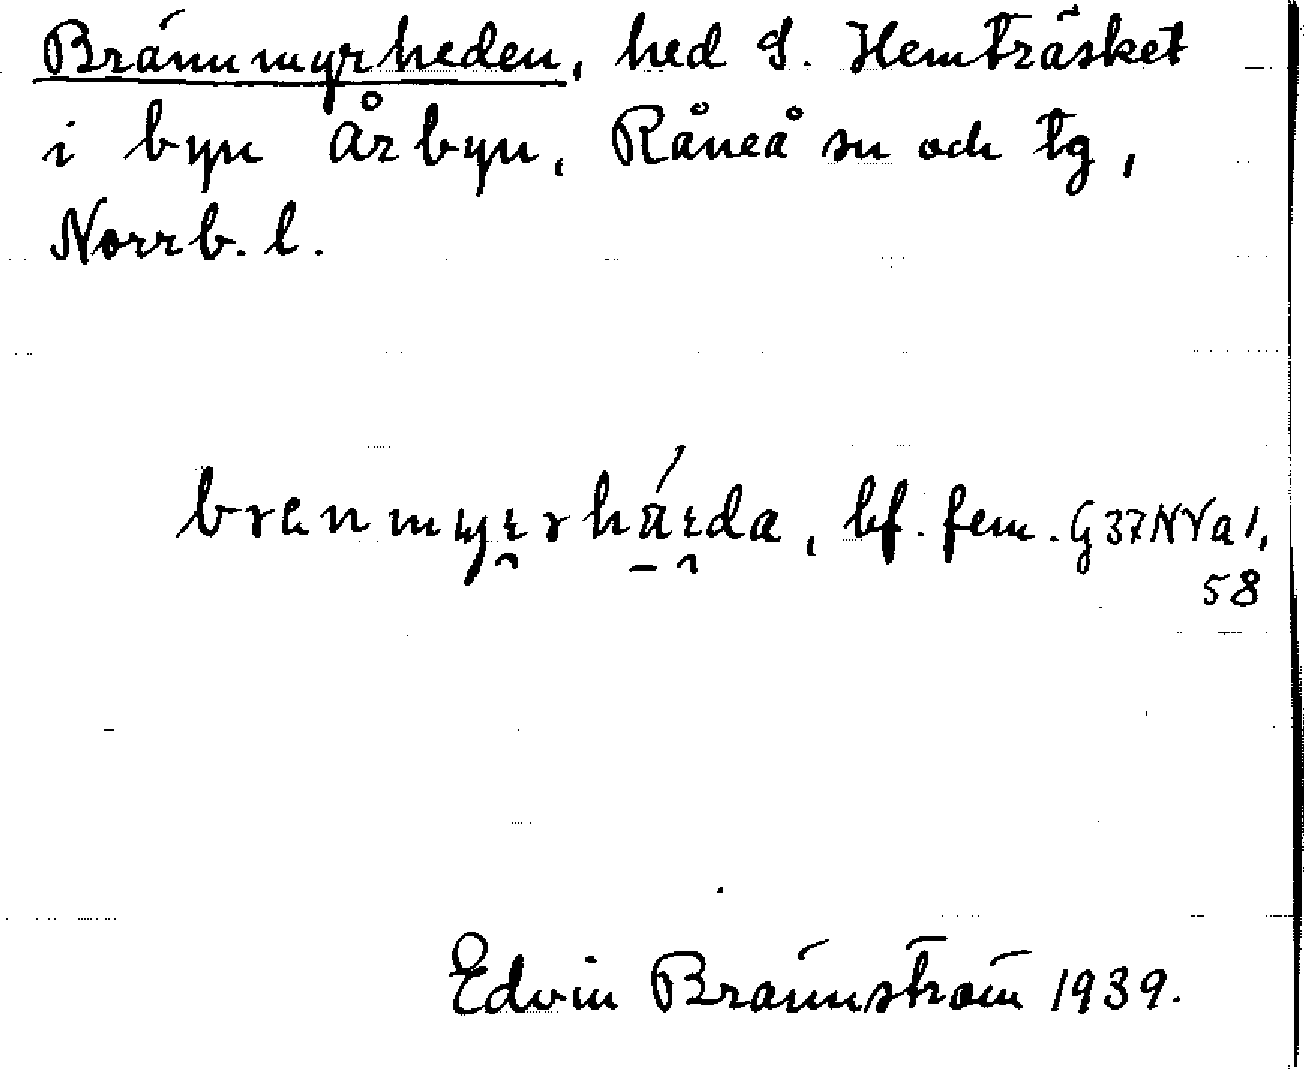 Brännmyrheden, hed S. Hemträsket
i byn Årbyn, Råneå sn och tg,
Norrb. l.
bf. fem. G37NYa1,
58
Edvin Brännström 1939.